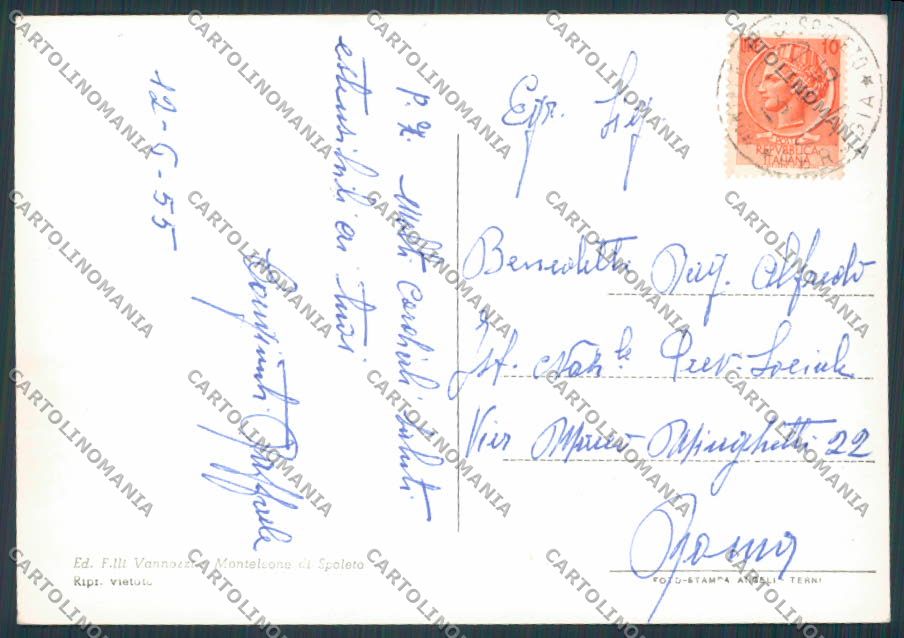 12-5-55
Molti Cordiali Saluti
estensibili ai tuoi
Raffaele
Egr. Sig.
Benedetti Rag. Alfredo
Ist. Naz.le Prev. Sociale
Via Marco Minghetti 22
Roma
LIRE 10
REPVBBLICA
ITALIANA
Ed. F.lli Vannozzi - Monteleone di Spoleto
Ripr. vietata
FOTO-STAMPA ANGELI - TERNI
CARTOLINOMANIA